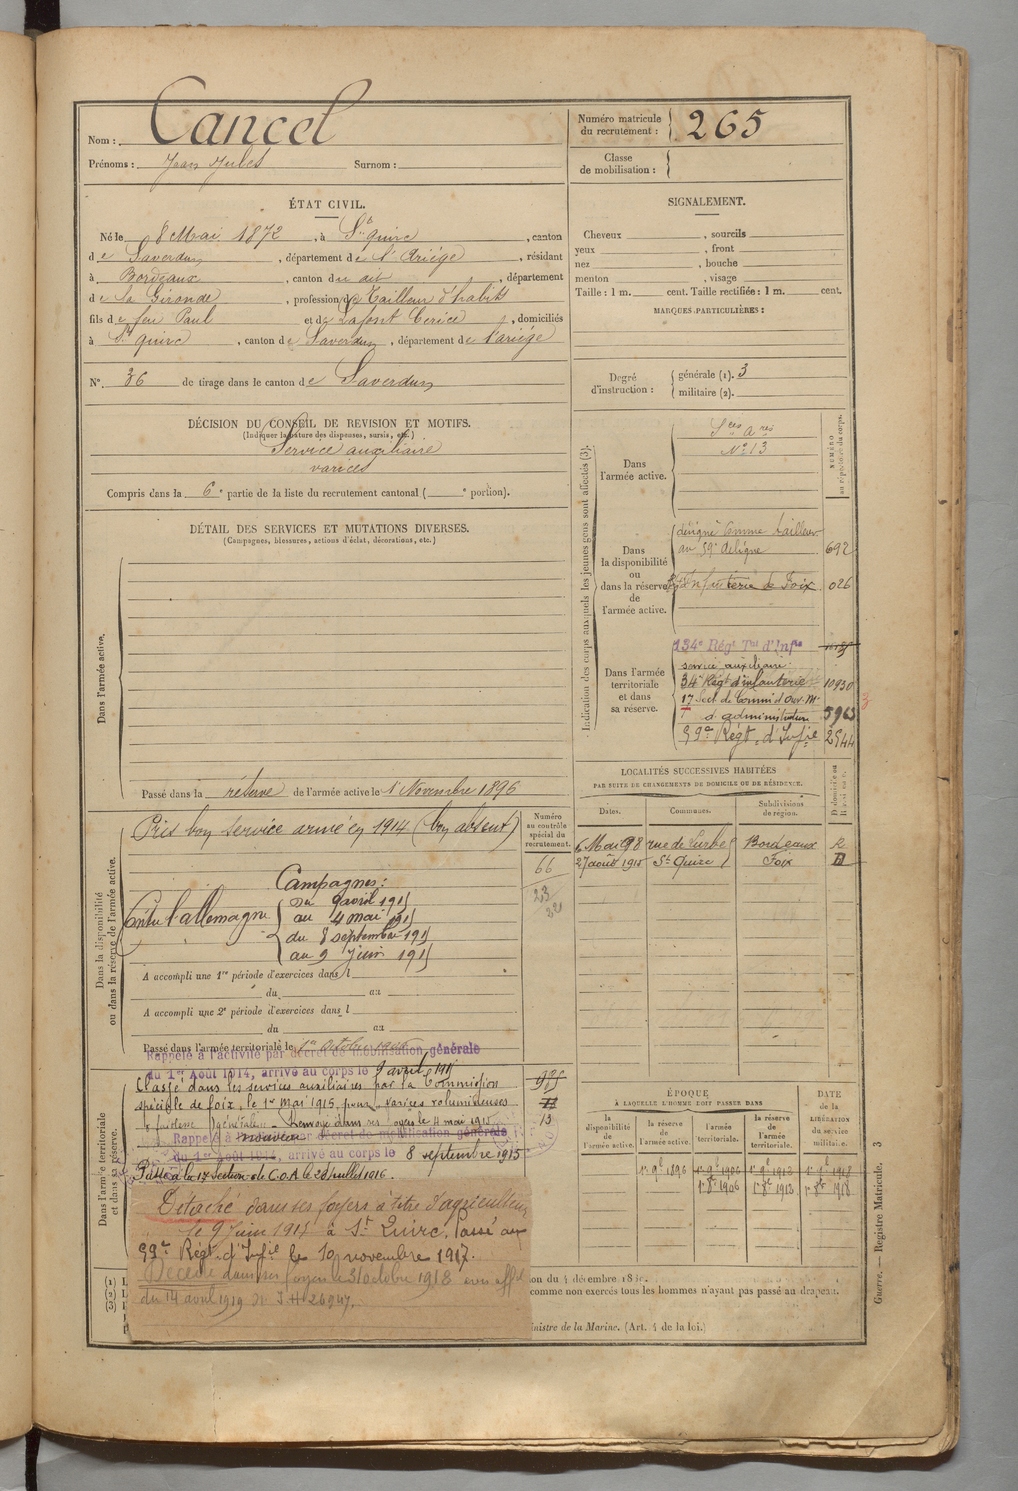 Nom : Cancel
Prénoms : Jean Jules Surnom :
Numéro matricule du recrutement : 265
Classe de mobilisation :
ÉTAT CIVIL.
Né le 8 Mai 1872, à St Quirc, canton
de Saverdun, département de l'Ariège, résidant
à Bordeaux, canton du dit, département
de la Gironde, profession de Tailleur d'habits
fils de feu Paul et de Lafont Cerice, domiciliés
à St Quirc, canton de Saverdun, département de l'ariège
N° 36 de tirage dans le canton de Saverdun
SIGNALEMENT.
Cheveux , sourcils
yeux , front
nez , bouche
menton , visage
Taille : 1 m. cent. Taille rectifiée : 1 m. cent.
MARQUES PARTICULIÈRES :
Degré d'instruction : générale (1). 3
militaire (2).
DÉCISION DU CONSEIL DE REVISION ET MOTIFS.
(Indiquer la nature des dispenses, sursis, etc.)
Service auxiliaire
varices
Compris dans la 6e partie de la liste du recrutement cantonal ( e portion).
DÉTAIL DES SERVICES ET MUTATIONS DIVERSES.
(Campagnes, blessures, actions d'éclat, décorations, etc.)
Dans l'armée active.
Passé dans la réserve de l'armée active le 1er Novembre 1896
Indication des corps auxquels les jeunes gens sont affectés (3).
NUMÉRO au répertoire du corps.
Dans l'armée active.
Sces a res
N° 13
Dans la disponibilité ou dans la réserve de l'armée active.
désigné comme tailleur
au 59e de ligne 692
Infanterie de Foix 026
Dans l'armée territoriale et dans sa réserve.
134e Régt Tal d'Infie
service auxiliaire.
34e Régt d'infanterie 10930
17 Sect. de Commis Ouv. M.
d'administration 5963
59e Régt. d'Infie 2544
LOCALITÉS SUCCESSIVES HABITÉES
PAR SUITE DE CHANGEMENTS DE DOMICILE OU DE RÉSIDENCE.
Dates. Communes. Subdivisions de région. D domicile ou R résidence.
6 Mai 98 rue de Bordeaux R
27 août 1915 St Quirc Foix D
Dans la disponibilité ou dans la réserve de l'armée active.
Numéro au contrôle spécial du recrutement.
66
23
32
Pris bon service armé en 1914 (bon absent)
Campagnes :
Contre l'allemagne
du 9 avril 1915
au 4 mai 1915
du 8 septembre 1915
au 9 juin 1915
A accompli une 1re période d'exercices dans l
du au
A accompli une 2e période d'exercices dans l
du au
Passé dans l'armée territoriale le 1er Octobre 1906
Dans l'armée territoriale et dans sa réserve.
Rappelé à l'activité par décret de mobilisation générale
du 1er Août 1914, arrivé au corps le 9 avril 1915
Classé dans les services auxiliaires par la Commission
spéciale de foix, le 1er mai 1915, pour varices volumineuses
Renvoyé dans ses foyers le 4 mai 1915 13
Rappelé à nouveau par décret de mobilisation générale
du 1er Août 1914, arrivé au corps le 8 septembre 1915
Passé à la 17e Section de C.O.A le 28 juillet 1916.
Détaché dans ses foyers à titre d'agriculteur
le 9 Juin 1917 à St Quirc. Passé au
59e Régt. d'Infie le 10 novembre 1917.
Décédé dans ses foyers le 31 octobre 1918 avis officiel
du 14 avril 1919 26947.
ÉPOQUE
À LAQUELLE L'HOMME DOIT PASSER DANS
la disponibilité de l'armée active.
la réserve de l'armée active.
l'armée territoriale.
la réserve de l'armée territoriale.
DATE de la LIBÉRATION du service militaire.
1er 9bre 1896 1er 9bre 1906 1er 9bre 1912 1er 9bre 1918
1er 8bre 1906 1er 8bre 1912 1er 8bre 1918
(1)
(2)
(3)
comme non exercés tous les hommes n'ayant pas passé au drapeau.
inistre de la Marine. (Art. 4 de la loi.)
Guerre. — Registre Matricule. 3